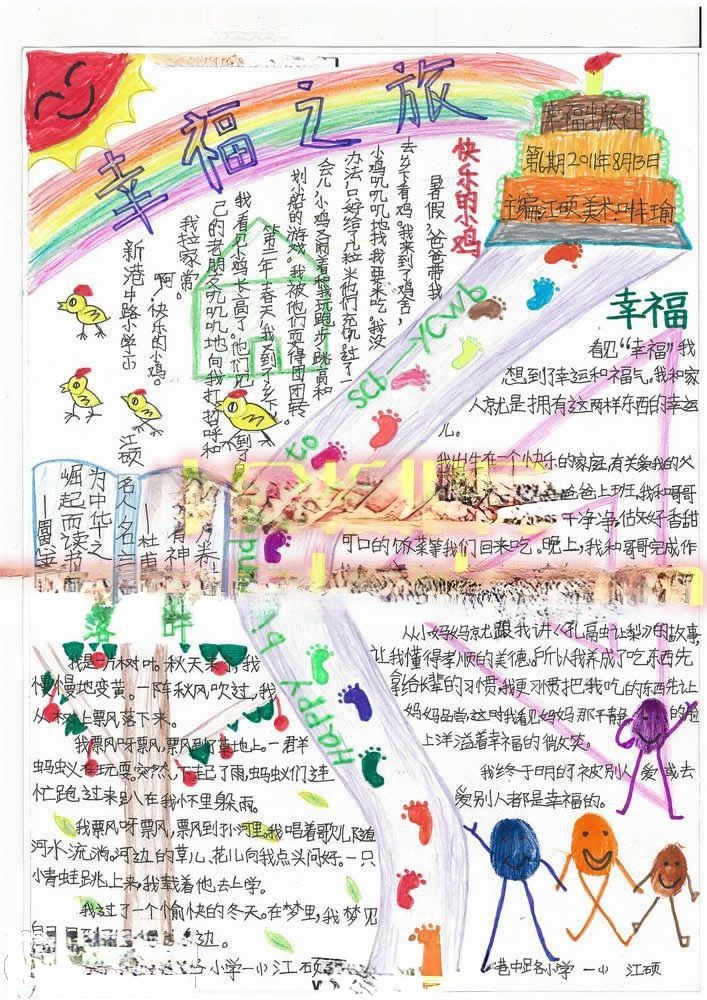 幸福之旅
幸福出版社
第6期2011年8月13日
主编:江硕 美术:叶瑜
快乐的小鸡
暑假,爸爸带我
去乡下看鸡。我来到了鸡舍,
小鸡叽叽叽地找我要米吃。我没
办法,只好给了几粒米他们充饥。过了一
会儿,小鸡又闹着和我玩跑步、跳高和
划小船的游戏。我被他们耍得团团转。
第二年春天,我又到了乡下。
我看见小鸡长高了。他们见到了自
己的老朋友叽叽叽地向我打招呼和
我拉家常。
啊,快乐的小鸡。
新港中路小学一(1)
江硕
幸福
看见“幸福”我
想到了幸运和福气。我和家
人就是拥有这两样东西的幸运
儿。
我出生在一个快乐的家庭,有关爱我的父
爸爸上班,我和哥哥
干净净,估好香甜
可口的饭菜等我们回来吃。晚上,我和哥哥完成作
从小妈妈就跟我讲《孔融让梨》的故事,
让我懂得孝顺的美德。所以我养成了吃东西先
拿给长辈的习惯,我更习惯把我吃的东西先让
妈妈品尝,这时我看见妈妈那干静的脸
上洋溢着幸福的微笑。
我终于明白了被别人爱或去
爱别人都是幸福的。
港中路小学 一(1) 江硕
名人名言
为中华之
崛起而读书
——周恩来
卷,
有神
——杜甫
Happy bi
to
SCb—YCWb
落叶
我是一片树叶。秋天来了,我
慢慢地变黄。一阵秋风吹过,我
从树上飘落下来。
我飘呀飘,飘到了草地上。一群
蚂蚁在玩耍。突然,下起了雨,蚂蚁们连
忙跑过来趴在我怀里躲雨。
我飘呀飘,飘到小河里。我唱着歌儿随
河水流淌。河边的草儿、花儿向我点头问好。一只
小青蛙跳上来,我载着他去上学。
我过了一个愉快的冬天。在梦里,我梦见
边。
小学一(1) 江硕